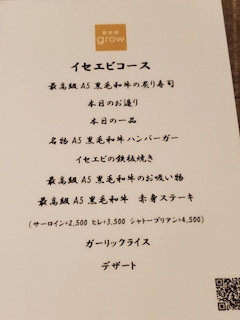 grow
イセエビコース
最高級A5黒毛和牛の炙り寿司
本日のお造り
本日の一品
名物A5黒毛和牛ハンバーガー
イセエビの鉄板焼き
最高級A5黒毛和牛のお吸い物
最高級A5黒毛和牛 赤身ステーキ
(サーロイン+2,500 ヒレ+3,500 シャトーブリアン+4,500)
ガーリックライス
デザート